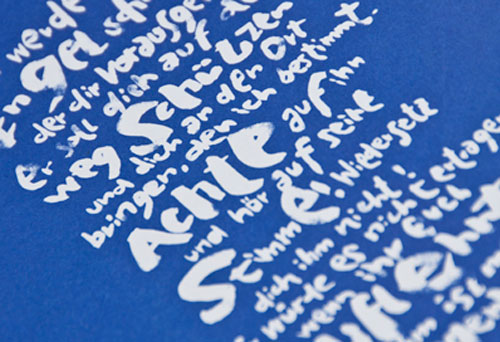 werde
Engel sch
der dir vorausge
Er soll dich auf d
weg Schützen
und dich an der Ort
bringen, den ich bestimmt.
Achte auf ihn
und hör auf seine
Stimme. Wiedersetz
dich ihm nicht!
würde es nicht Ertrage
wenn ihr Euch
flehnt
ist m